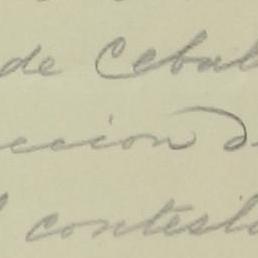 de Cebal
ccion d
l contesta